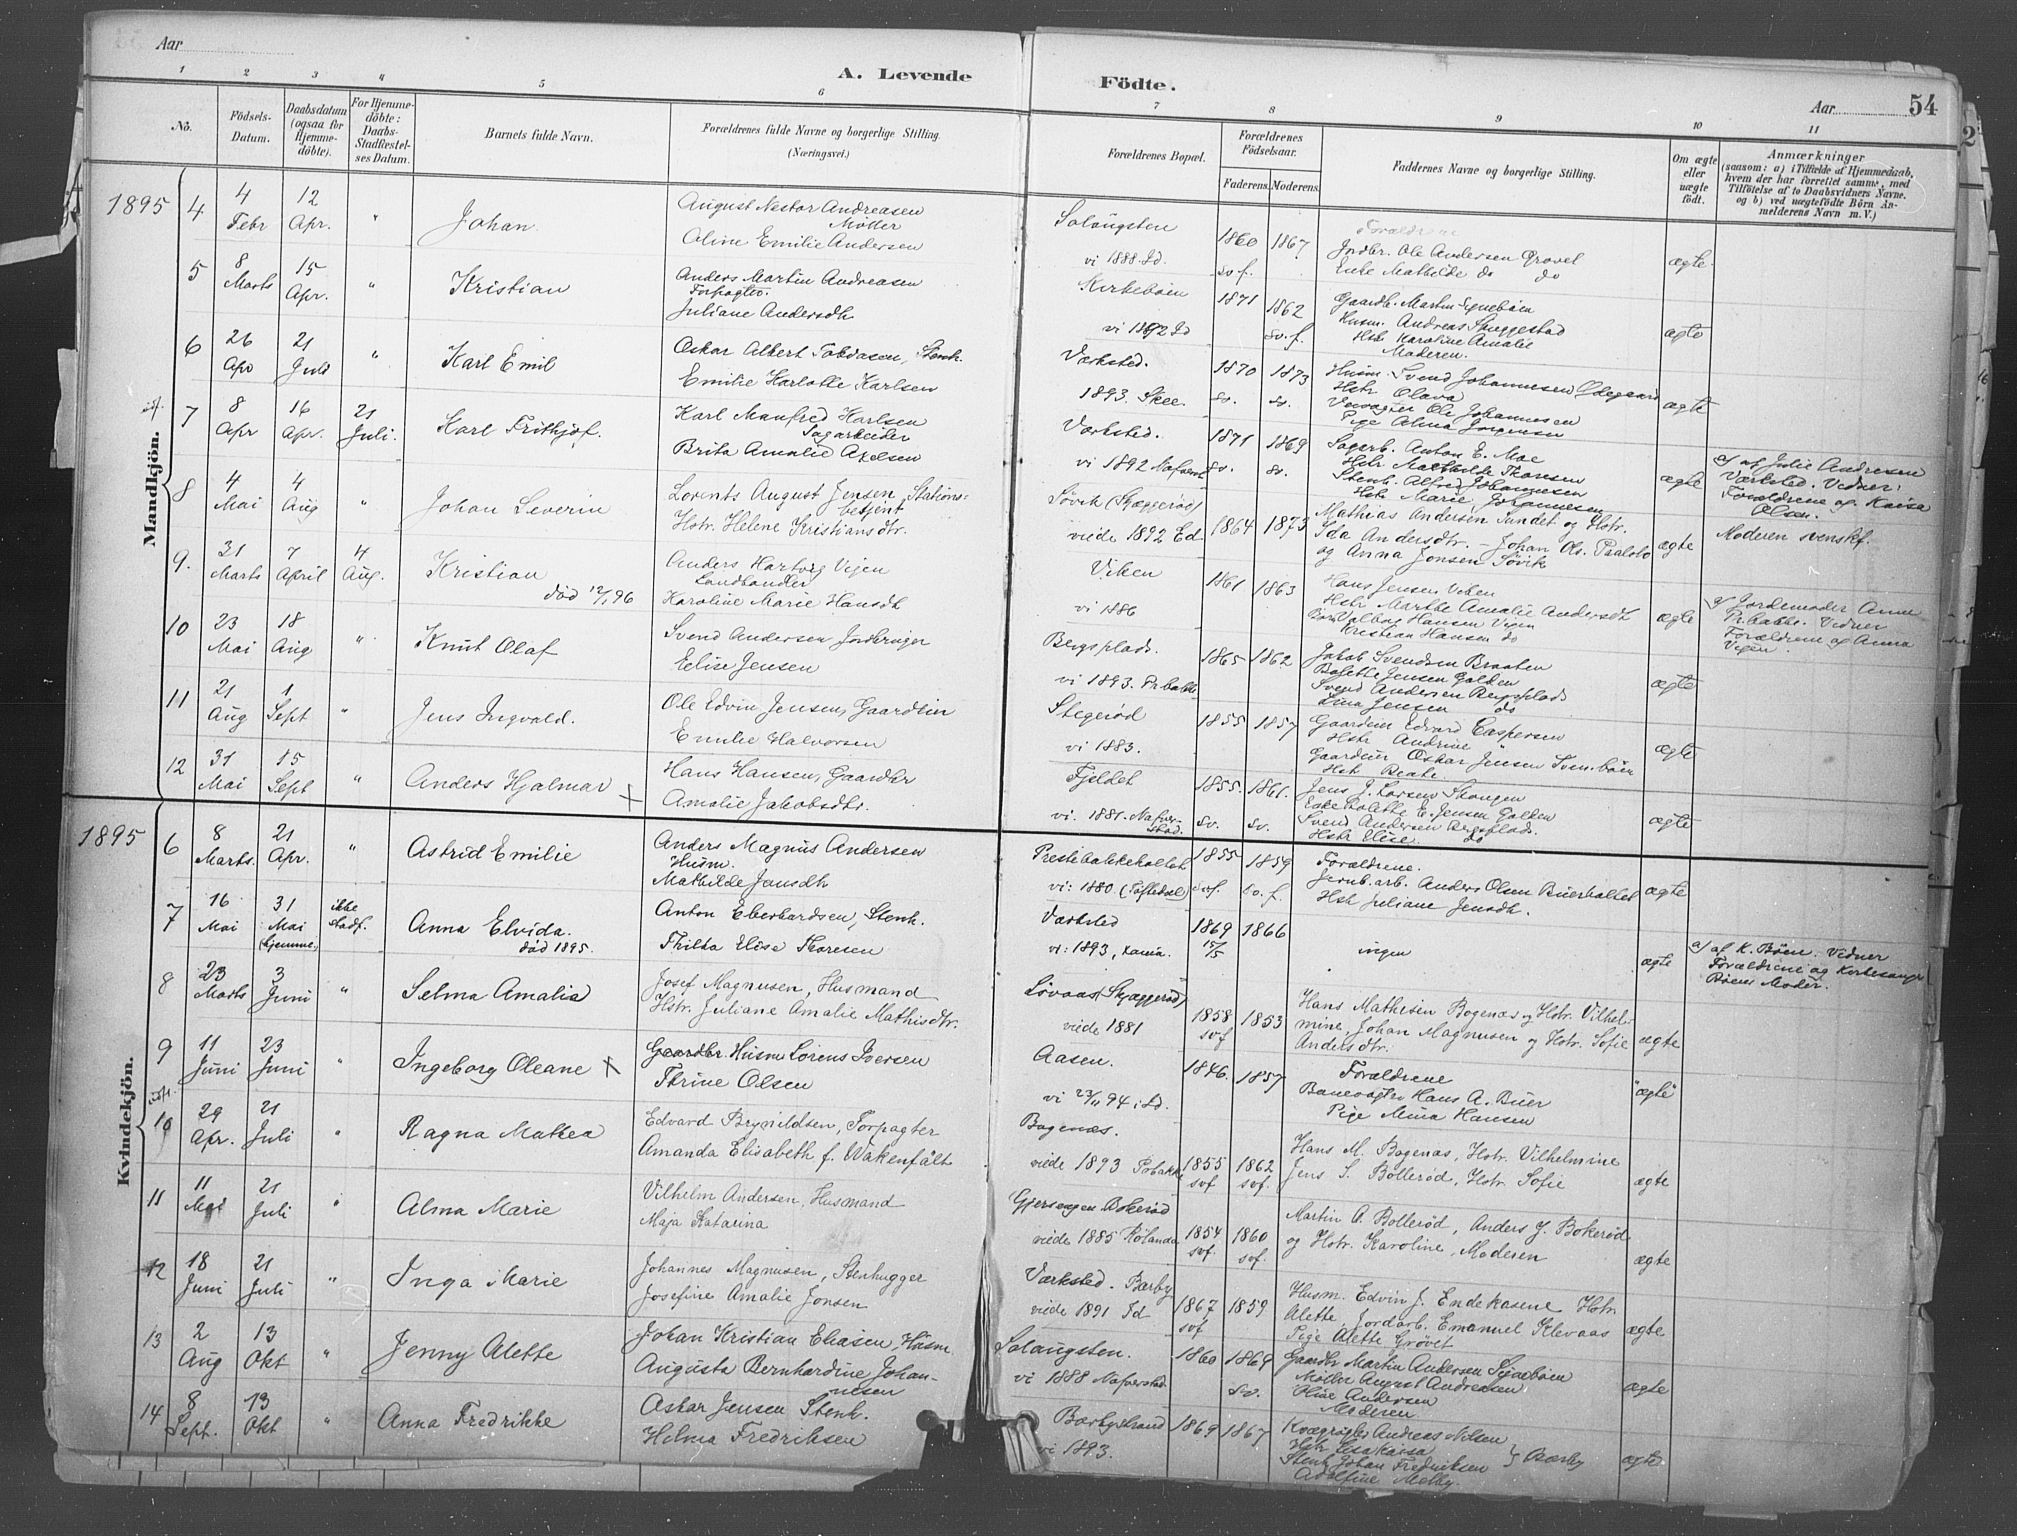 Aar
A. Levende
Födte.
Aar
54
1 2 3 4 5 6 7 8 9 10 11
No.
Födsels-Datum.
Daabsdatum (ogsaa for Hjemme-döbte).
For Hjemme-döbte: Daabs-Stadfæstel-ses Datum.
Barnets fulde Navn.
Forældrenes fulde Navne og borgerlige Stilling.
(Næringsvei.)
Forældrenes Bopæl.
Forældrenes Födselsaar.
Faderens. Moderens.
Faddernes Navne og borgerlige Stilling.
Om ægte eller uægte födt.
Anmærkninger
(saasom: a) i Tilfælde af Hjemmedaab, hvem der har forrettet samme, med Tilföielse af to Daabsvidners Navne. og b) ved uægtefödte Börn An-melderens Navn m. V.)
Mandkjön.
1895 4 4 Febr 12 Apr. " Johan
August Nestor Andreasen
Möller
Aline Emilie Andersen
Solaugsten
vi 1888. Id.
1860 1867
sv. f.
Forældrene
Jordbr. Ole Andersen Grovet
Enke Mathilde do do
ægte.
5 8 Marts 15 Apr. " Kristian
Anders Martin Andreasen
Forpagter.
Juliane Andersdh
Kirkeböen
vi 1892 Id
1871 1862
sv. f.
Gaardb. Martin
Husm. Andreas Skeggestad
Hstr Karoline Amalie
Moderen.
ægte
6 26 Apr 21 Juli " Karl Emil
Oskar Albert Tobiasen, Stenh.
Emilie Harlotte Karlsen
Værksted.
1893. Skee.
1870 1873
sv. sv.
Husm. Svend Johannesen Ödegaard
Hstr Olava
Ole Johannesen
Pige Alma Jörgensen
ægte
7 8 Apr 16 Apr. 21 Juli. Karl Frithjof.
Karl Manfred Karlsen
Sagarbeider
Brita Amalie Axelsen
Værksted.
vi 1892 Nafverst
1871 1869
sv. sv.
Sagarb. Anton E. Moe
Hstr Mathilde Thoresen
Stenh. Alfred Johannesen
Hstr Marie Johannesen
ægte
a) af Julie Andresen
Værksted. Vidner:
Forældrene og Kaisa
Olsen.
8 4 Mai 4 Aug " Johan Severin
Lorents August Jensen, Stations-
betjent
Hstr. Helene Kristiansdtr.
Søvik (Skæggeröd)
viede 1892 Ed
1864 1873
Mathias Andersen Sundet og Hstr.
Ida Andersdtr. - Johan Ols.
og Anna Jonsen Søvik
ægte
Moderen svenskf.
9. 31 Marts 7 April 4 Aug. Kristian
död 12/1 96
Anders Hartvig Vijen
Landhandler
Karoline Marie Hansdh
Viken
vi 1886
1861 1863
Hans Jensen Viken
Hstr Marthe Amalie Andersdt
Valbor Hansen Vigen
Kristian Hansen do
ægte
a) Jordemoder Anne
Pr.bakke. Vidner
Forældrene og Anna
Vigen.
10 23 Mai 18 Aug " Knut Olaf
Svend Andersen Jordbruger
Elise Jensen
Bergsplads.
vi 1893. Pr.bakke
1865 1862
Jakob Svendsen Braaten
Bolette Jensen Golden
Svend Andersen Bergsplads
Lina Jensen do
ægte
11 21 Aug 1 Sept " Jens Ingvald.
Ole Edvin Jensen, Gaardeier
Emilie Halvorsen
Stegeröd
vi 1883.
1855 1857
Gaardeier Edvard Caspersen
Hstr Andrine "
Gaardeier Oskar Jensen
Hstr Beate
ægte
12 31 Mai 15 Sept " Anders Hjalmar +
Hans Hansen, Gaardbr
Amalie Jakobsdtr.
Fjeldet
vi. 1881. Nafver-
stad.
1855. 1861.
sv. sv.
Jens J. Larsen Skougen
Enke Bolette E. Jensen Golden
Svend Andersen Bergsplads.
Hstr Elise. do
ægte
Kvindekjön.
1895 6 8 Marts. 21 Apr. " Astrid Emilie
Anders Magnus Andersen
Husm.
Mathilde Jensdh
Prestebakkehollet
vi: 1880 (Töftedal)
1855 1859
sv. f. sv. f.
Forældrene.
Jernb.arb. Anders Olsen Buerhollet
Hstr Juliane Jensdh.
ægte
7 16 Mai 31 Mai (hjemme) ikke stadf. Anna Elvida.
död 1895.
Anton Eberhardsen, Stenh.
Thilta Elise Thoresen
Værksted
vi: 1893,
1869 1866
15/5
ingen
ægte
a) af K. Böen. Vidner
Forældrene og Kirkesanger
Böens Moder.
8 23 Marts 3 Juni " Selma Amalia
Josef Magnusen, Husmand
Hstr. Juliane Amalie Mathisdtr.
Lövaas (Skjæggeröd)
viede 1881
1858 1853
svf
Hans Mathisen Bogenæs og Hstr. Vilhel-
mine, Johan Magnusen og Hstr. Sofie
Andersdtr.
ægte
9 11 Juni 23 Juni " Ingeborg Oleane +
Gaardbr. Husm Lorens Iversen
Thrine Olsen
Aasen.
vi 23/11 94 i Id.
1846. 1857
Forældrene
Banevogter Hans A. Buer
Pige Mina Hansen
"ægte"
10 29 Apr. 21 Juli " Ragna Mathea
Edvard Brynildsen, Forpagter
Amanda Elisabeth f. Wakenfält
Bogenæs.
viede 1893 Prbakke
1855 1862
svf svf.
Hans M. Bogenæs, Hstr. Vilhelmine
Jens S. Bolleröd, Hstr. Sofie
ægte
11 11 Mai 21 Juli " Alma Marie
Vilhelm Andersen, Husmand
Maja Katarina
Gjersengen Bokeröd
viede 1885 Rölanda
1854 1860
svf. svf.
Martin A. Bolleröd, Anders J. Bokeröd
og Hstr. Karoline, Moderen
ægte
12 18 Juni 21 Juli " Inga Marie
Johannes Magnusen, Stenhugger
Josefine Amalie Jonsen
Værksted. Barby
viede 1891 Id
1867 1859
svf
Husm. Edvin J. Endekasene Hstr.
Alette, Jordarb. Emanuel Klevaas
Pige Alette Grövet
ægte
13 2 Aug 13 Okt " Jenny Alette
Johan Kristian Eliasen, Husm.
Augusta Bernhardine Johan-
nesen
Solaugsten.
vi 1888 Nafverstad
1860 1869
sv.
Gaardbr Martin Andersen
Möller August Andreasen
Andersen
Moderen
ægte
14 8 Sept. 13 Okt " Anna Fredrikke
Oskar Jensen Stenh.
Helma Fredriksen
Barbystrand
vi 1893.
1869 1867
Andreas Nilsen
Hstr Lisa Kaisa
Stenh Johan Fredriksen } Barby
Adolfine Melby.
ægte